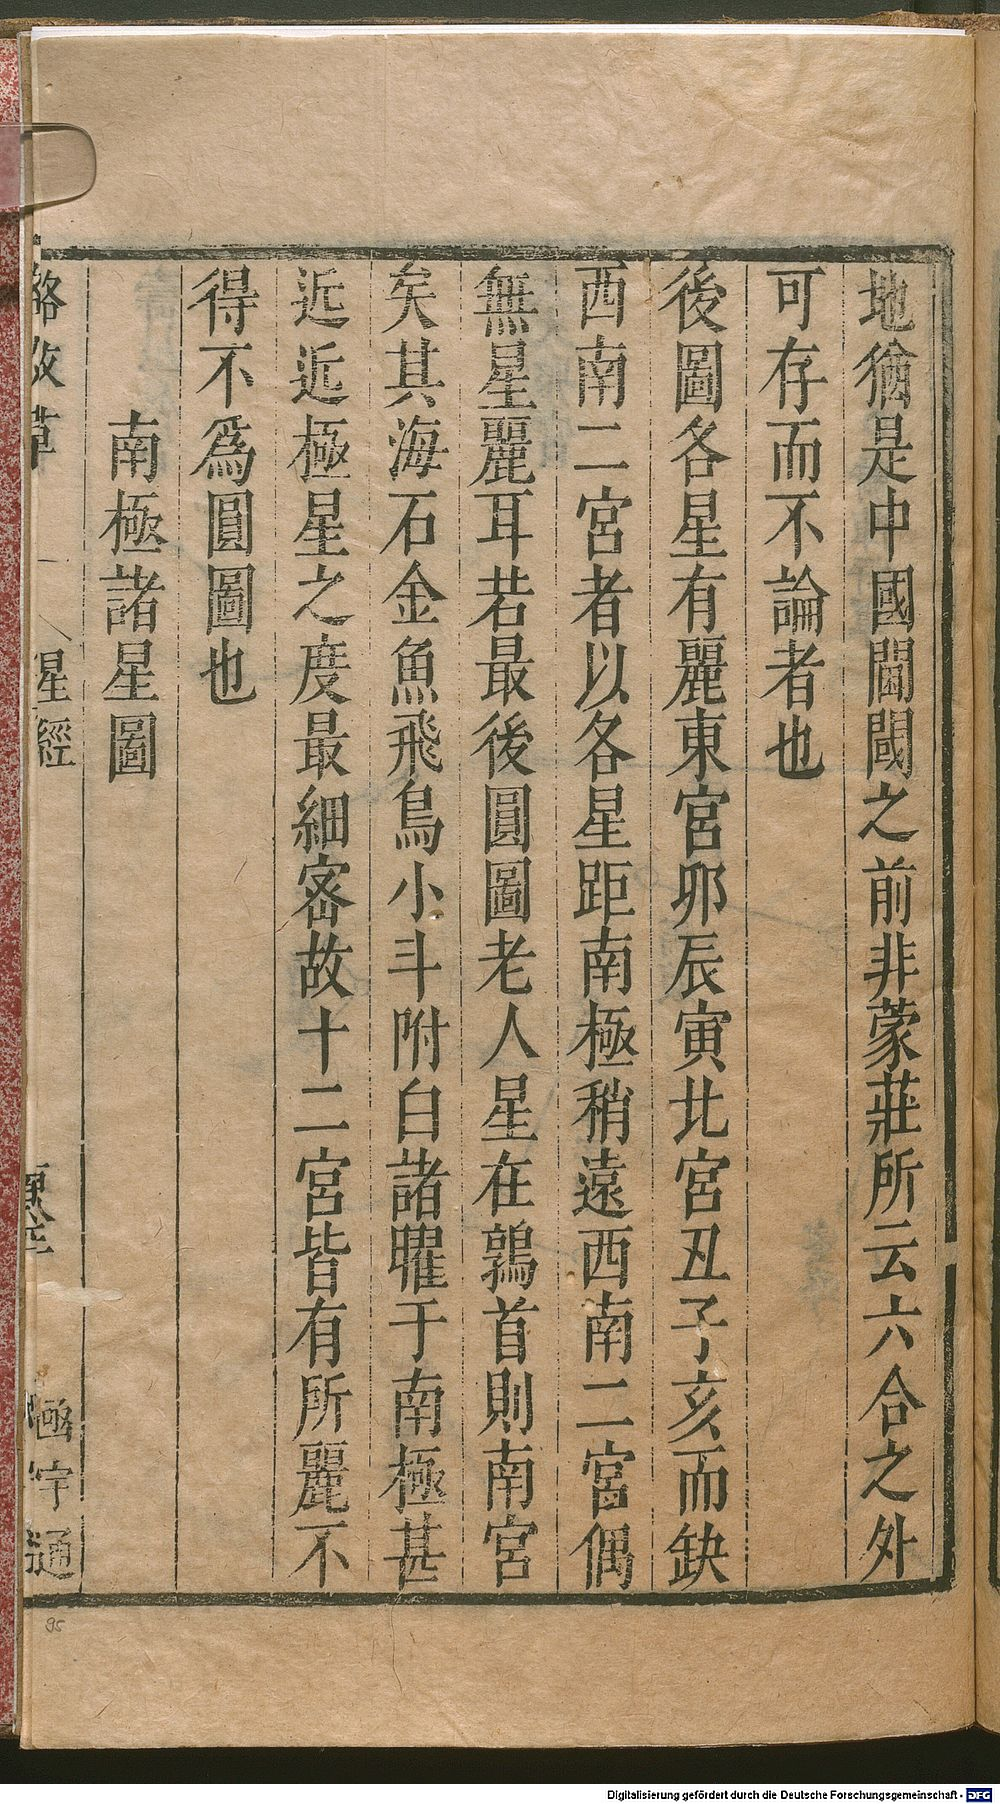 地猶是中國閫閾之前非蒙莊所云六合之外
可存而不論者也
後圖各星有麗東宮卯辰寅北宮丑子亥而缺
西南二宮者以各星距南極稍遠西南二宮偶
無星麗耳若最後圓圖老人星在鶉首則南宮
矣其海石金魚飛鳥小斗附白諸曜于南極甚
近近極星之度最細宻故十二宮皆有所麗不
得不爲圓圖也
南極諸星圖
草 星經 函宇通
95
Digitalisierung gefördert durch die Deutsche Forschungsgemeinschaft - DFG